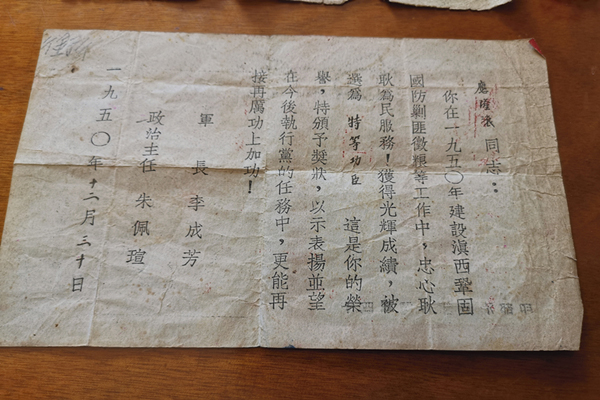 同志：
你在一九五〇年建設滇西鞏固
國防剿匪徵粮等工作中，忠心耿
耿為民服務！獲得光輝成績，被
選為 特等功臣 這是你的榮
譽，特頒予獎狀，以示表揚並望
在今後執行黨的任務中，更能再
接再厲功上加功！
軍 長 李成芳
政治主任 朱佩瑄
一九五〇年十二月三十日